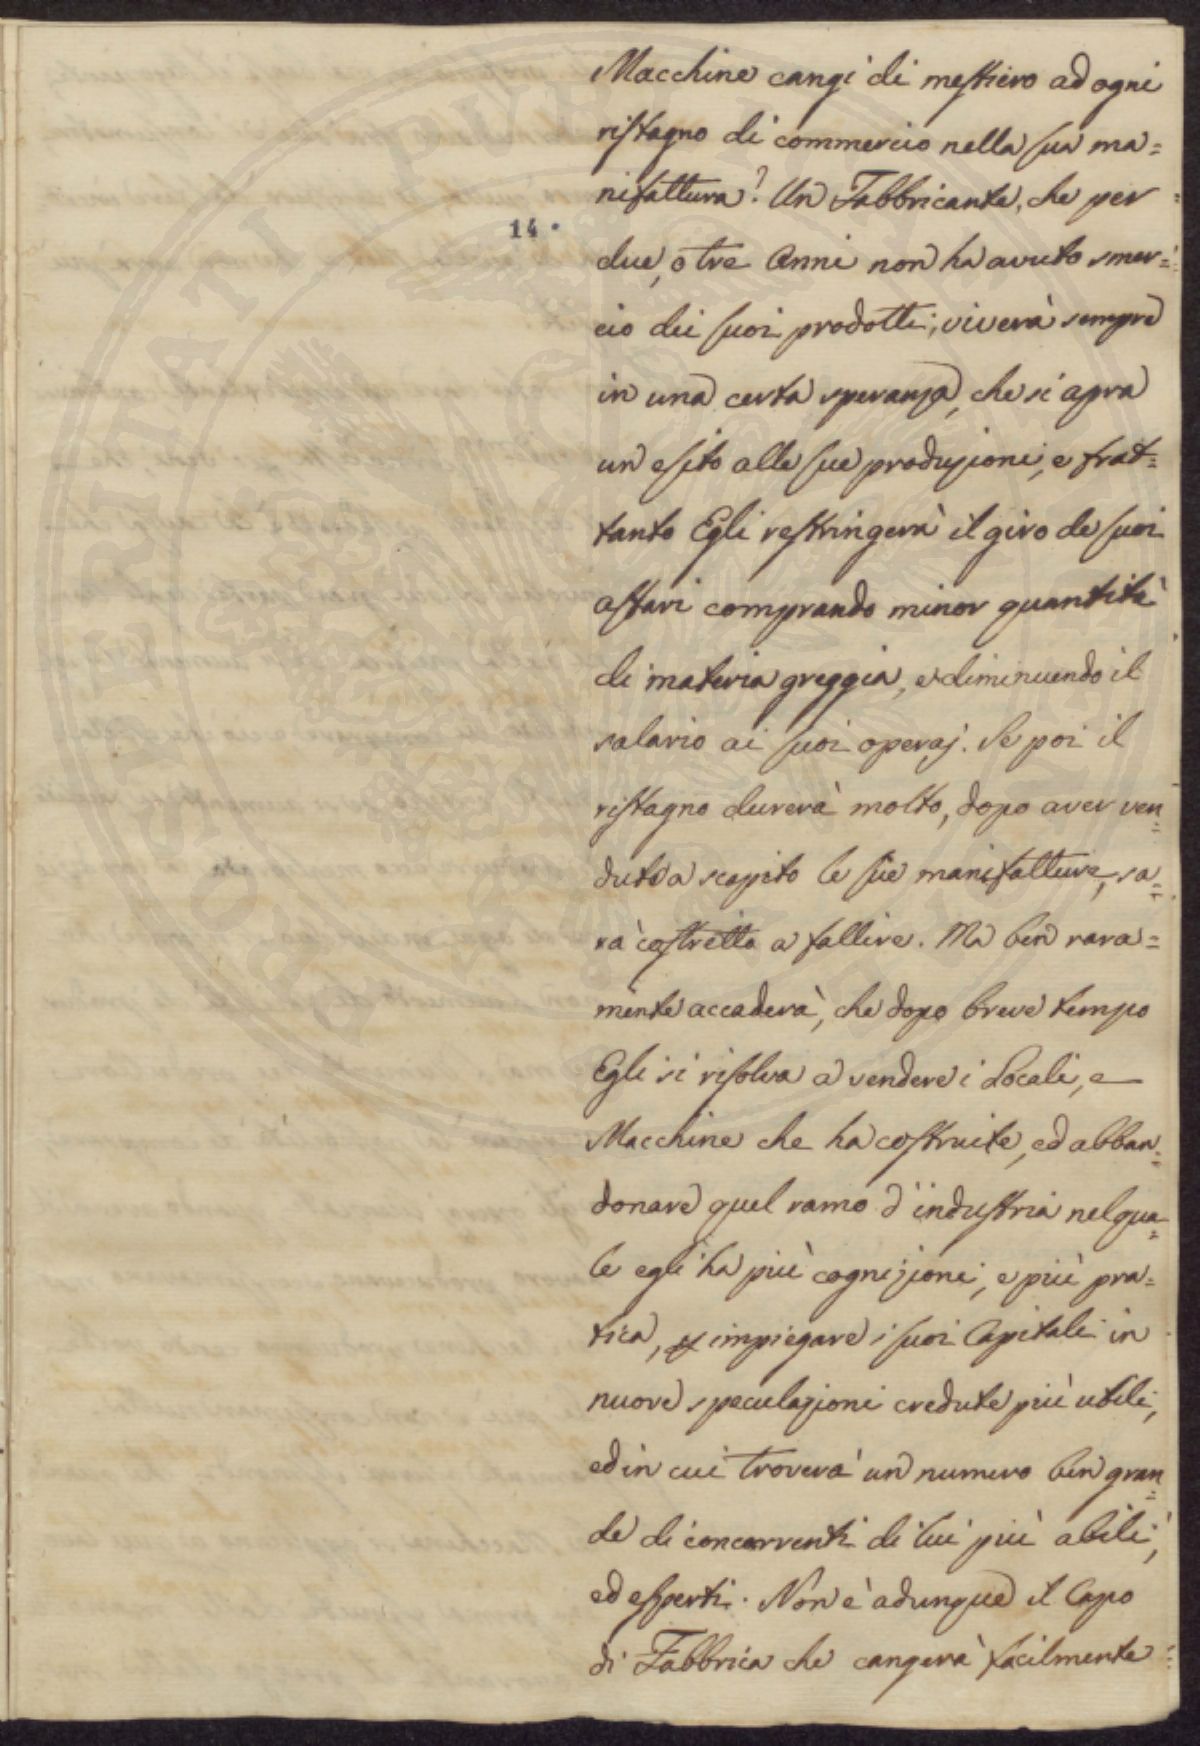 Macchine cangi di mestiero ad ogni
ristagno di commercio nella sua ma=
nifattura? Un Fabbricante, che per
14.
due, o tre Anni non ha avuto smer=
cio dei suoi prodotti, viverà sempre
in una certa speranza, che si apra
un esito alle sue produzioni, e frat=
tanto Egli restringerà il giro de suoi
affari comprando minor quantità
di materia greggia, e diminuendo il
salario ai suoi operaj. Se poi il
ristagno durerà molto, dopo aver ven=
duto a scapito le sue manifatture, sa=
rà costretto a fallire. Ma ben rara=
mente accaderà, che dopo breve tempo
Egli si risolva a vendere i Locali, e
Macchine che ha costruite, ed abban=
donare quel ramo d'industria nel qua=
le egli ha più cognizioni, e più pra=
tica, impiegare i suoi Capitali in
nuove speculazioni credute più utili,
ed in cui troverà un numero ben gran=
de di concorrenti di lui più abili,
ed esperti. Non è adunque il Capo
di Fabbrica che cangerà facilmente